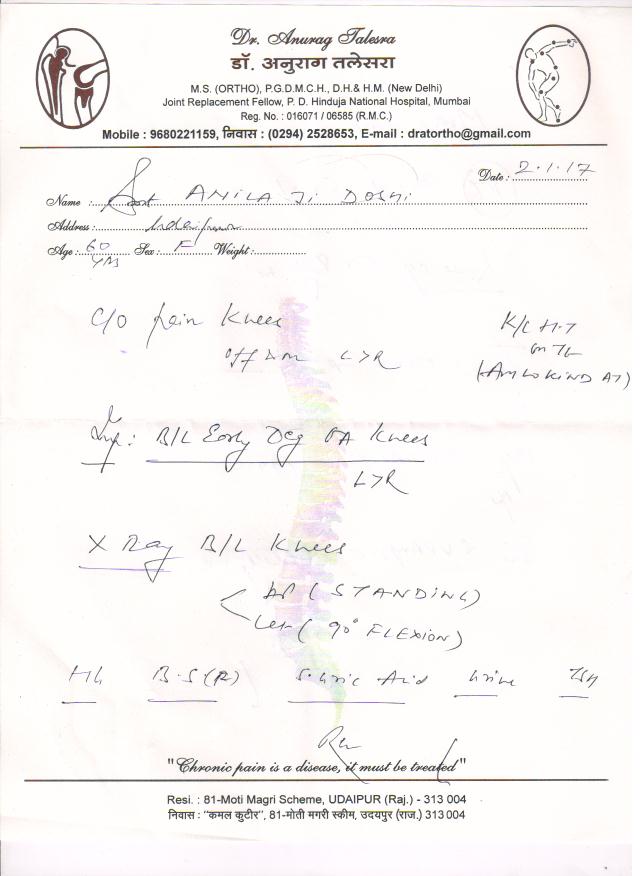 Dr. Anurag Talesra
डॉ. अनुराग तलेसरा
M.S. (ORTHO), P.G.D.M.C.H., D.H.& H.M. (New Delhi)
Joint Replacement Fellow, P. D. Hinduja National Hospital, Mumbai
Reg. No. : 016071 / 06585 (R.M.C.)
Mobile : 9680221159, निवास : (0294) 2528653, E-mail : dratortho@gmail.com
Date : 2.1.17
Name : Smt ANILA Ji DOSHI
Address : Udaipur
Age : 60 yrs Sex : F Weight :
C/O pain Knees
off & on L>R
K/C H.T
on Tt
(AMLOKIND AT)
Imp: B/L Early Deg OA Knees
L>R
X Ray B/L Knees
AP (STANDING)
Lat (90° FLEXION)
Hb B.S(R) S. Uric Acid Urine TSH
"Chronic pain is a disease, it must be treated"
Resi. : 81-Moti Magri Scheme, UDAIPUR (Raj.) - 313 004
निवास : "कमल कुटीर", 81-मोती मगरी स्कीम, उदयपुर (राज.) 313 004